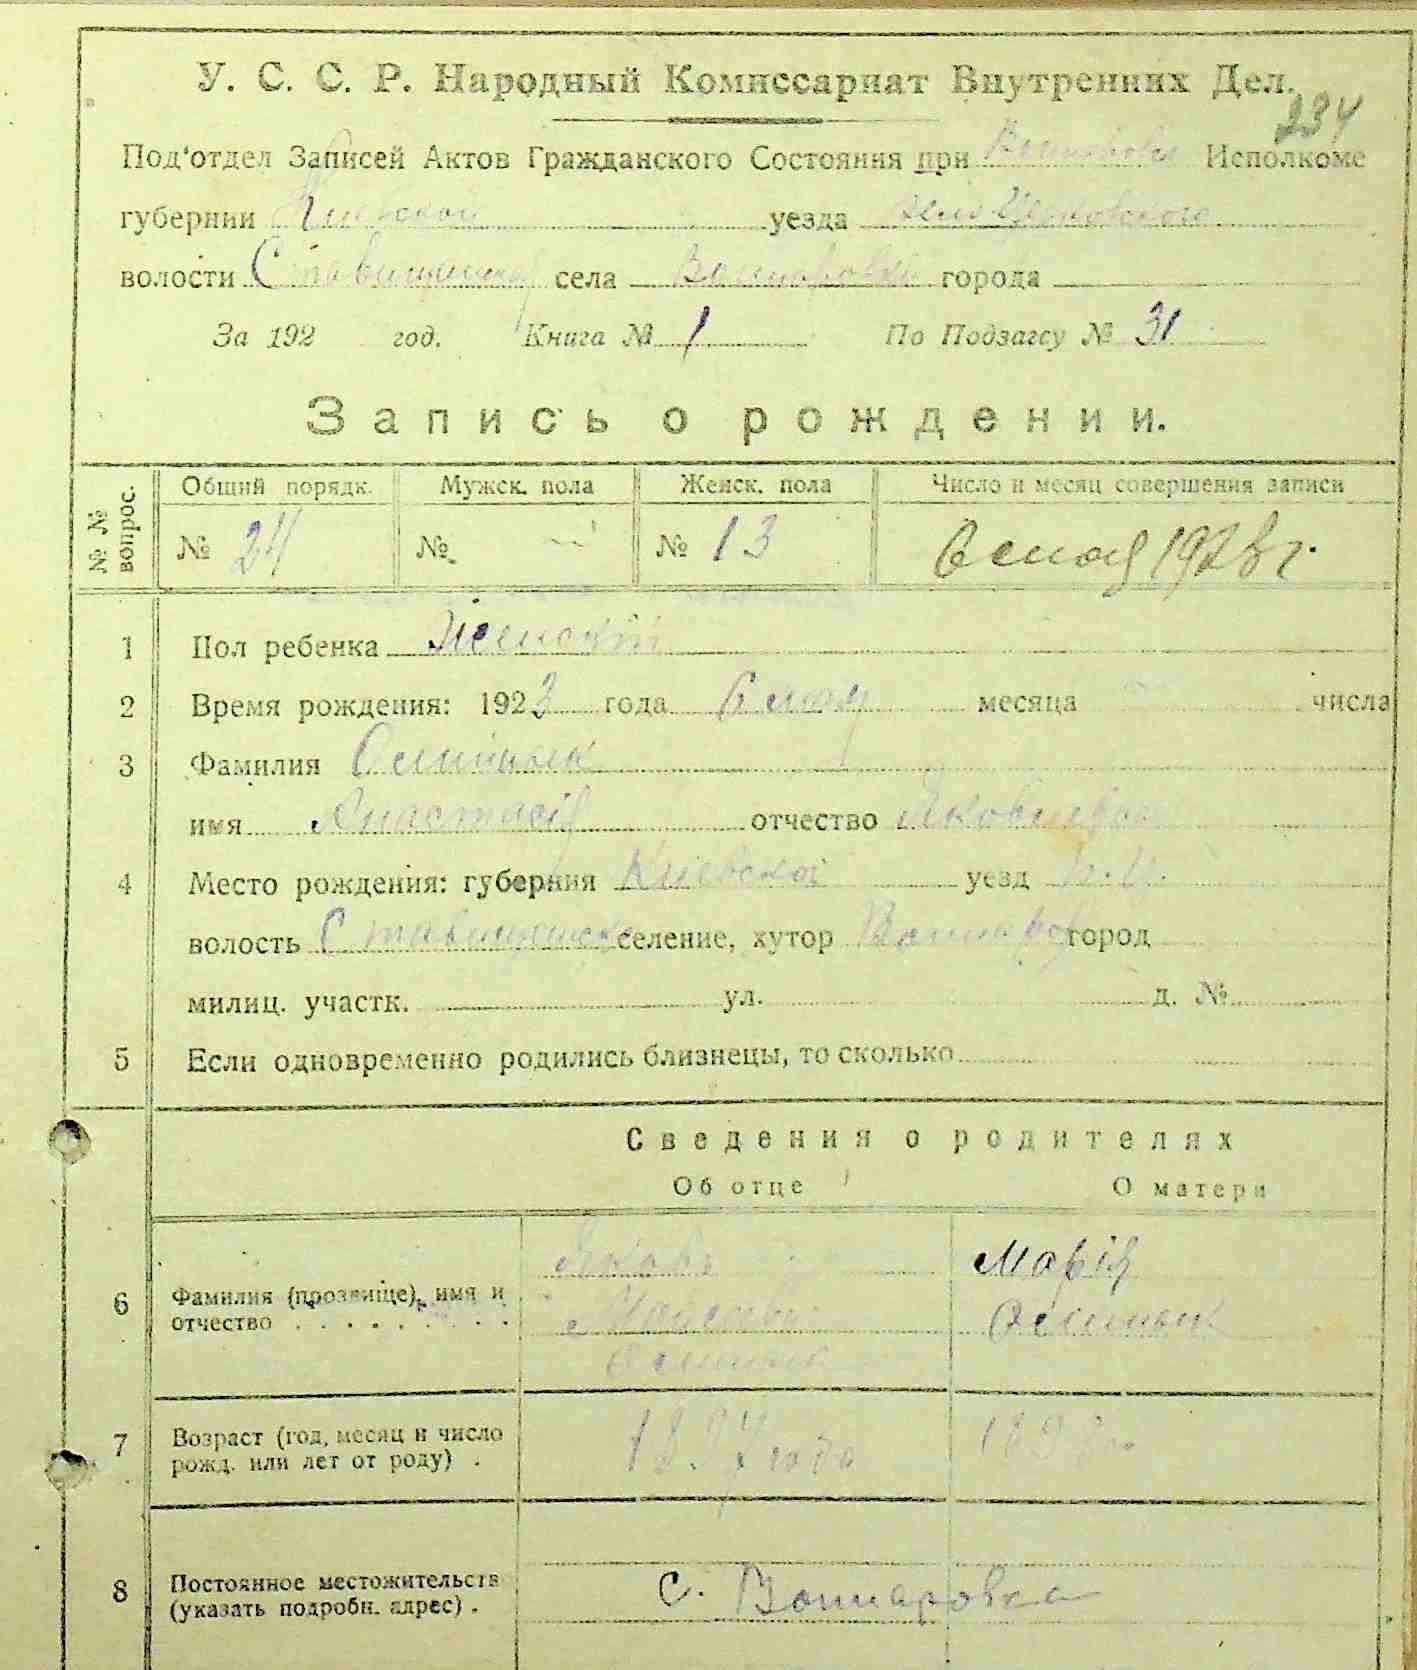 234
У. С. С. Р. Народный Комиссариат Внутренних Дел.
Под'отдел Записей Актов Гражданского Состояния при Исполкоме
губернии Киевской уезда Бело Церковского
волости Ставищанской села Бошаровка города
За 192 год. Книга № 1 По Подзагсу № 31
Запись о рождении.
№ № вопрос.
Общий порядк. Мужск. пола Женск. пола Число и месяц совершения записи
№ 24 № № 13 6 1923 г.
1 Пол ребенка Женский
2 Время рождения: 1923 года 6 мая месяца числа
3 Фамилия
имя Анастасія отчество Яковлевна
4 Место рождения: губерния Киевской уезд Б. Ц.
волость селение, хутор город
милиц. участк. ул. д. №
5 Если одновременно родились близнецы, то сколько
Сведения о родителях
Об отце О матери
6 Фамилия (прозвище), имя и отчество Яковъ Марія
7 Возраст (год, месяц и число рожд. или лет от роду) . 1897 года 1898 г.
8 Постоянное местожительств (указать подробн. адрес) . с.